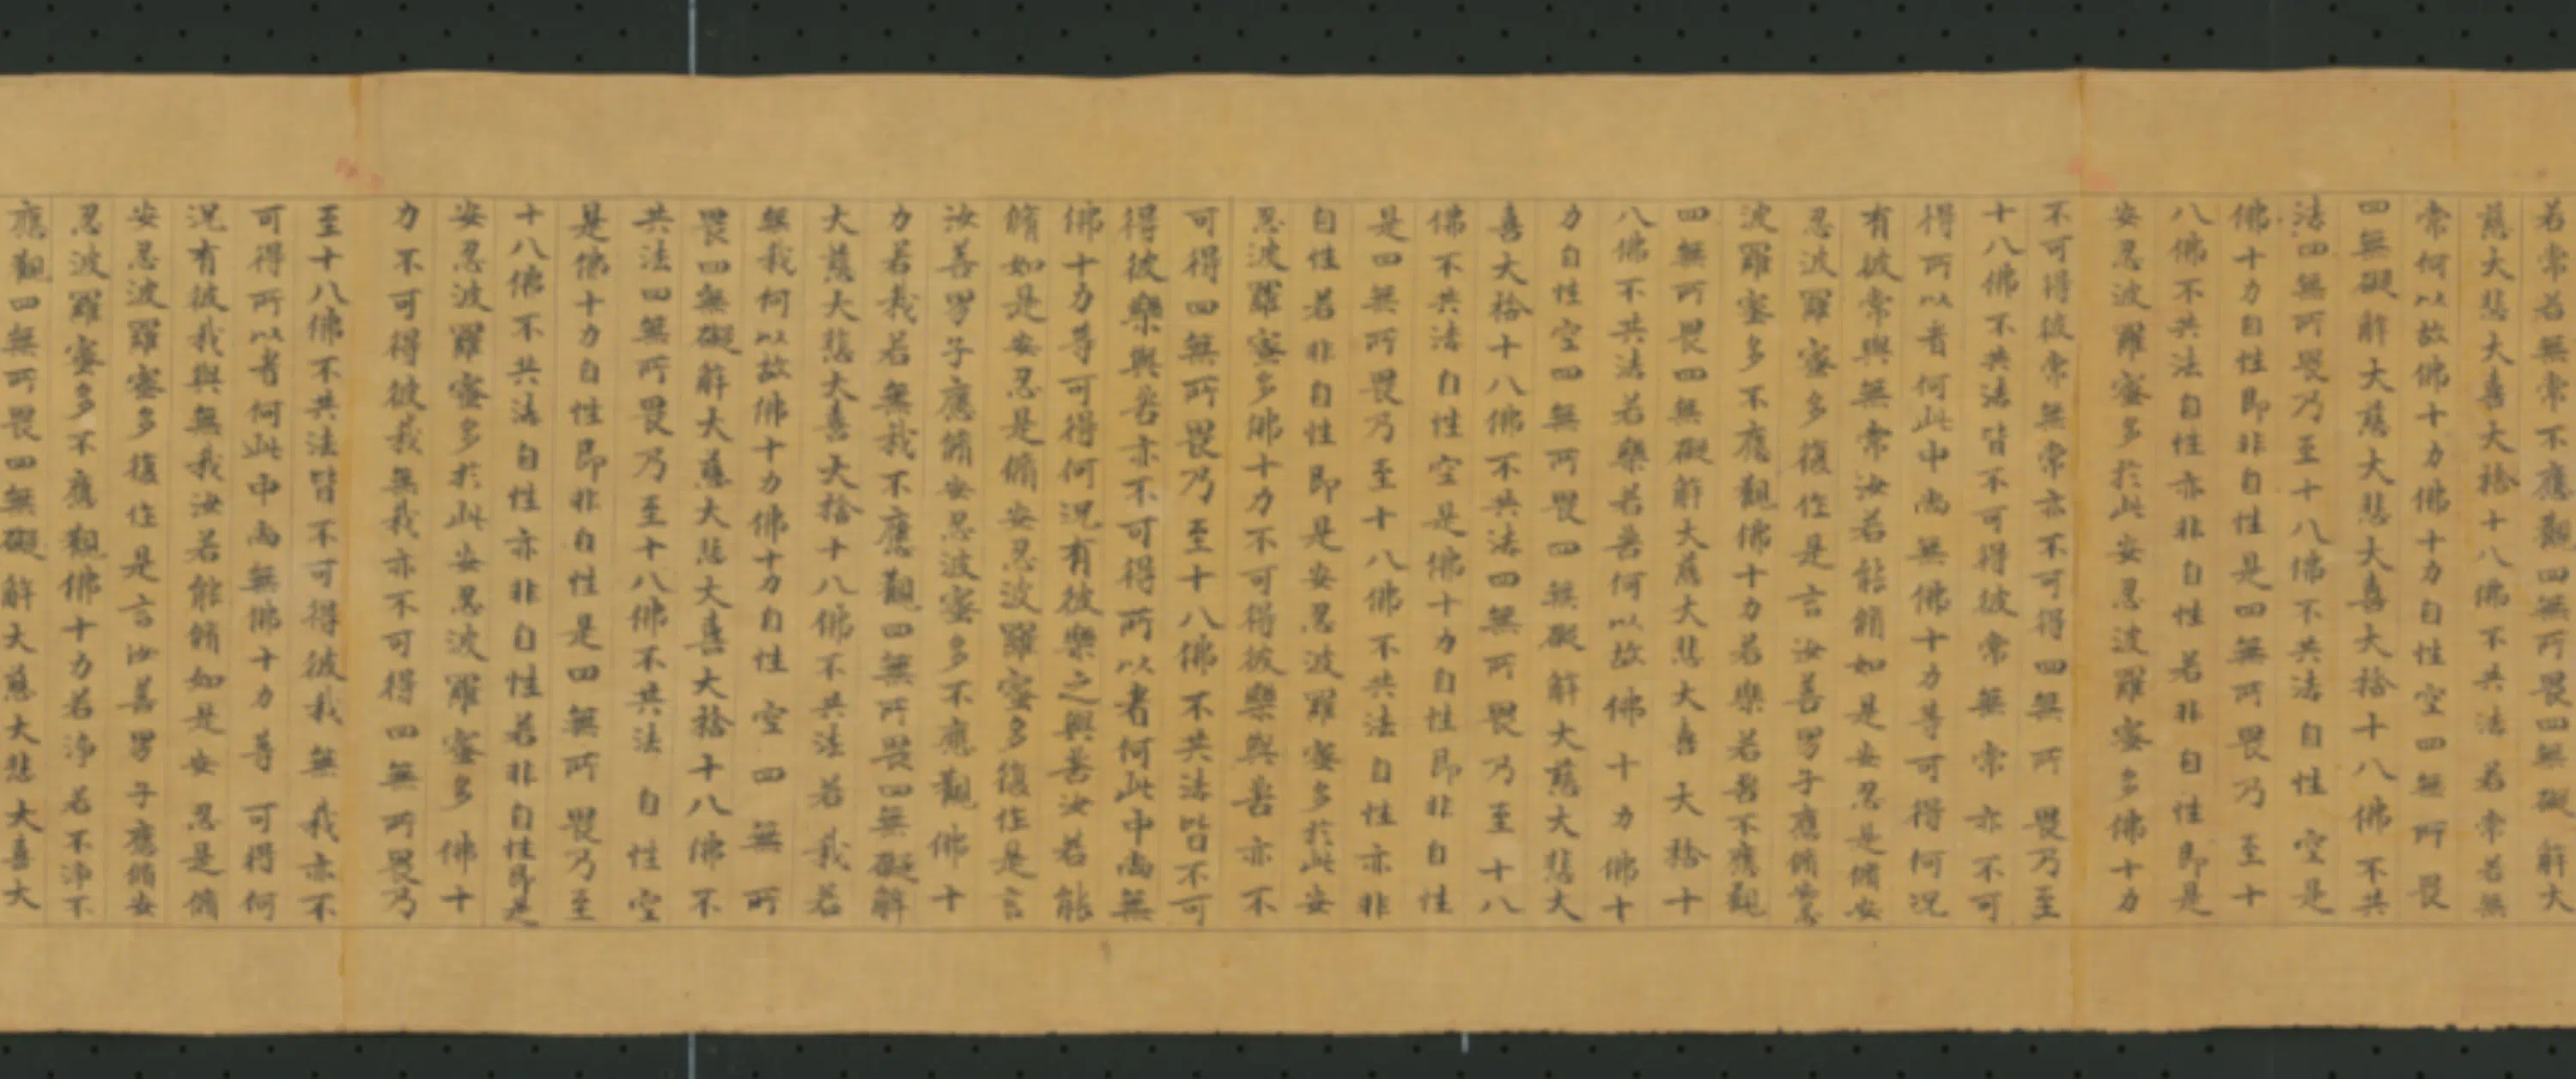 若常若無常不應觀四無所畏四無礙解大
慈大悲大喜大捨十八佛不共法若常若無
常何以故佛十力佛十力自性空四無所畏
四無礙解大慈大悲大喜大捨十八佛不共
法四無所畏乃至十八佛不共法自性空是
佛十力自性即非自性是四無所畏乃至十
八佛不共法自性亦非自性若非自性即是
安忍波羅蜜多於此安忍波羅蜜多佛十力
不可得彼常無常亦不可得四無所畏乃至
十八佛不共法皆不可得彼常無常亦不可
得所以者何此中尚無佛十力等可得何況
有彼常與無常汝若能脩如是安忍是脩安
忍波羅蜜多復作是言汝善男子應脩安忍
波羅蜜多不應觀佛十力若樂若苦不應觀
四無所畏四無礙解大慈大悲大喜大捨十
八佛不共法若樂若苦何以故佛十力佛十
力自性空四無所畏四無礙解大慈大悲大
喜大捨十八佛不共法四無所畏乃至十八
佛不共法自性空是佛十力自性即非自性
是四無所畏乃至十八佛不共法自性亦非
自性若非自性即是安忍波羅蜜多於此安
忍波羅蜜多佛十力不可得彼樂與苦亦不
可得四無所畏乃至十八佛不共法皆不可
得彼樂與苦亦不可得所以者何此中尚無
佛十力等可得何況有彼樂之與苦汝若能
脩如是安忍是脩安忍波羅蜜多復作是言
汝善男子應脩安忍波蜜多不應觀佛十
力若我若無我不應觀四無所畏四無礙解
大慈大悲大喜大捨十八佛不共法若我若
無我何以故佛十力佛十力自性空四無所
畏四無礙解大慈大悲大喜大捨十八佛不
共法四無所畏乃至十八佛不共法自性空
是佛十力自性即非自性是四無所畏乃至
十八佛不共法自性亦非自性若非自性即是
安忍波羅蜜多於此安忍波羅蜜多佛十
力不可得彼我無我亦不可得四無所畏乃
至十八佛不共法皆不可得彼我無我亦不
可得所以者何此中尚無佛十力等可得何
況有彼我與無我汝若能脩如是安忍是脩
安忍波羅蜜多復作是言汝善男子應脩安
忍波羅蜜多不應觀佛十力若淨若不淨不
應觀四無所畏四無礙解大慈大悲大喜大